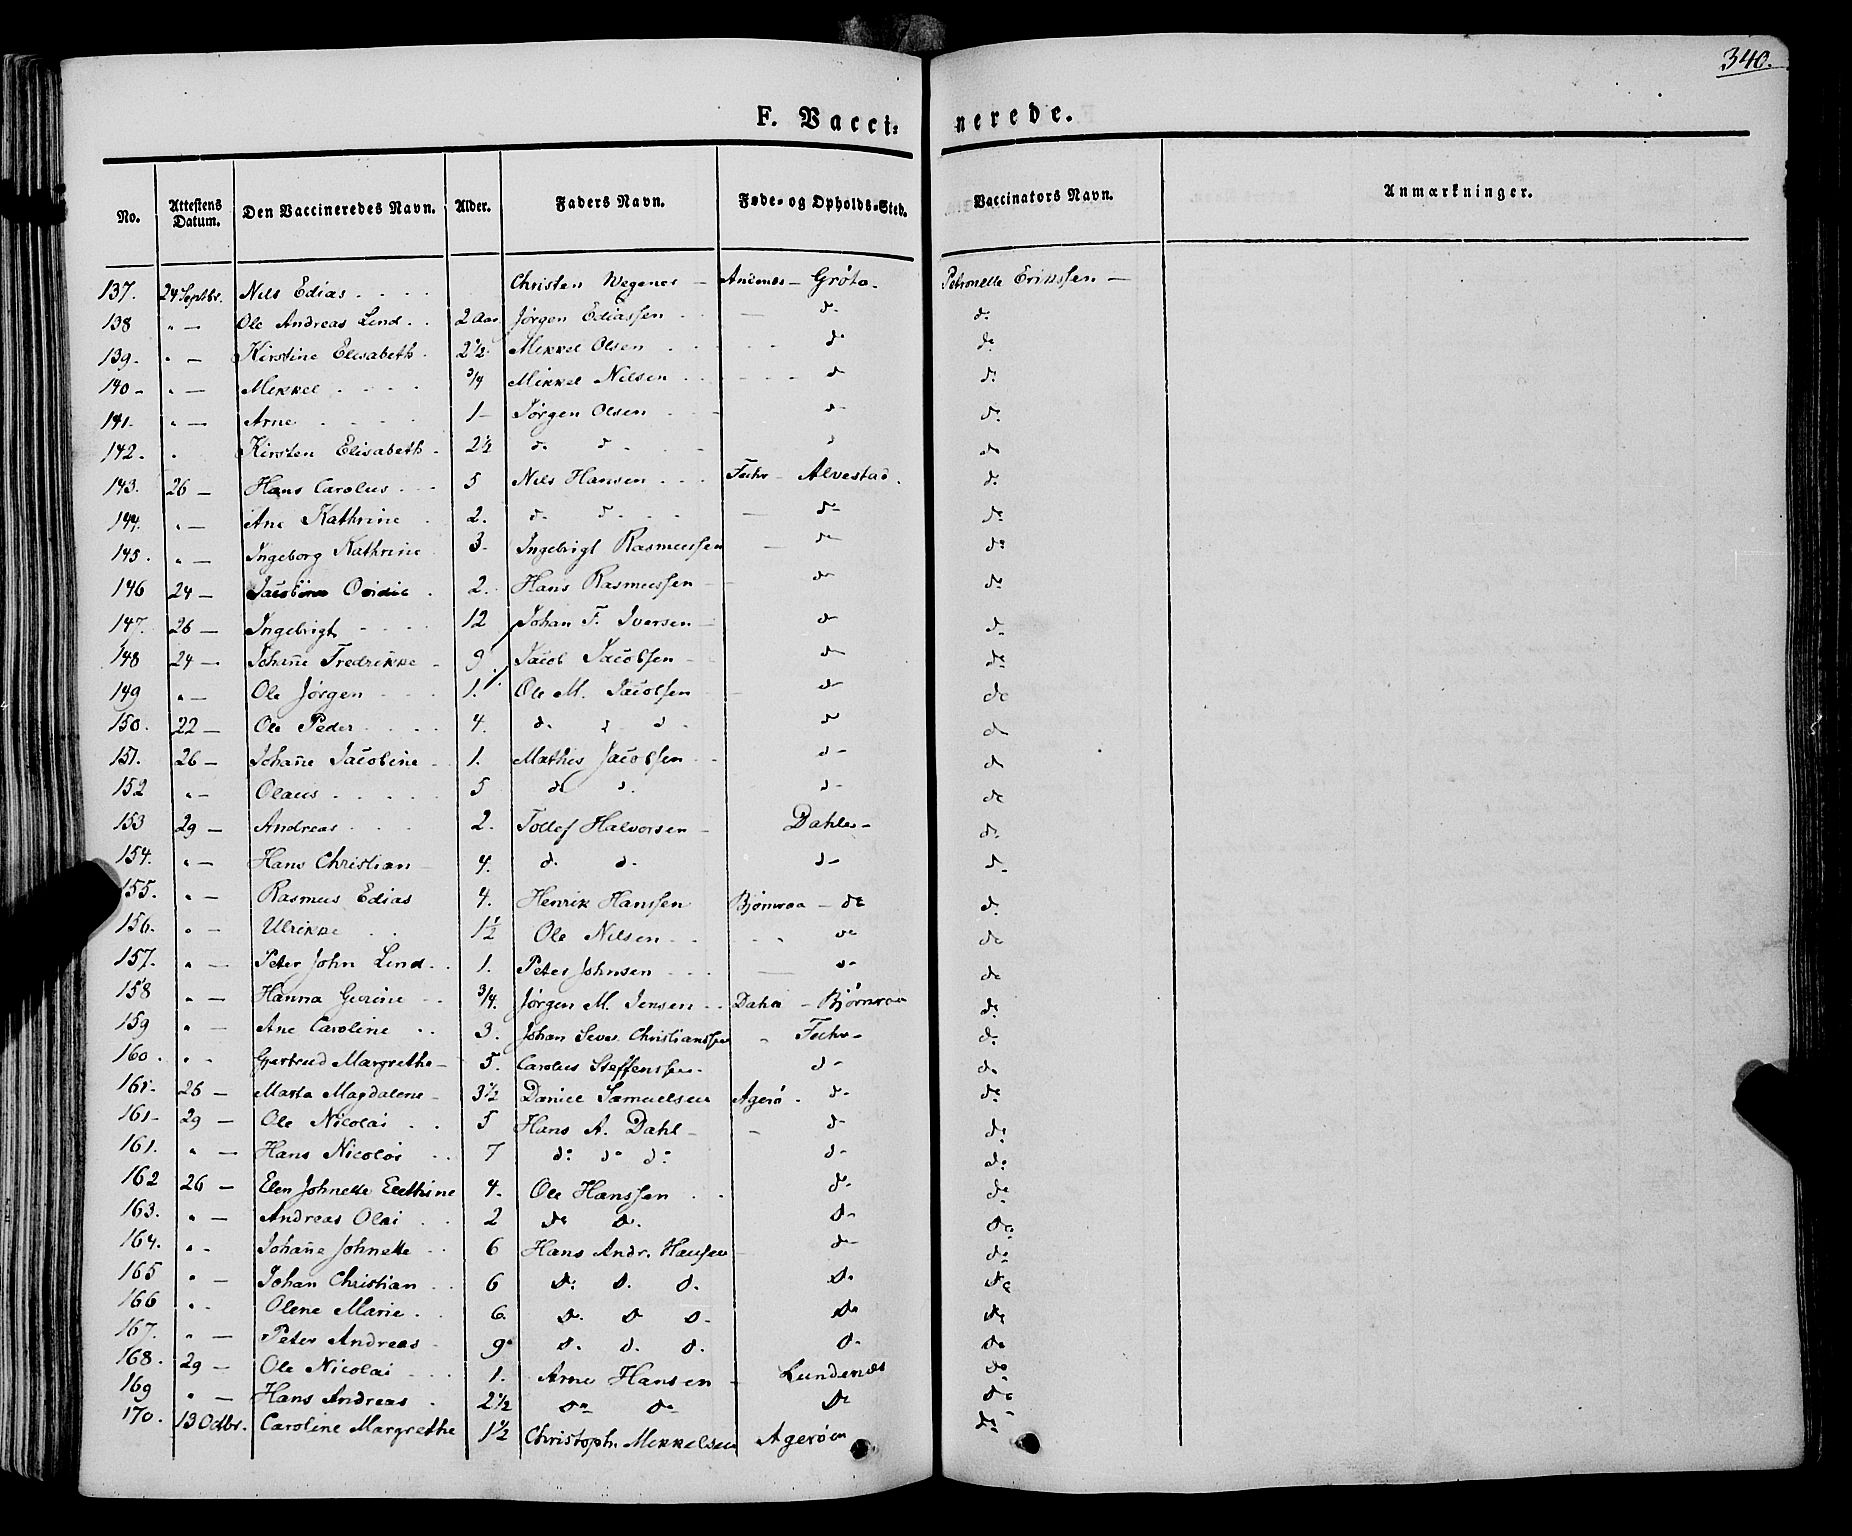 340.
F. Vaccinerede.
No. | Attestens Datum. | Den Vaccineredes Navn. | Alder. | Faders Navn. | Føde- og Opholds-Sted. | Vaccinators Navn. | Anmærkninger.
137. 24 Septbr. Nils Edias . . . . Christen Wegener — Andenes — Grøta. Petronelle Erikssen —
138 " — Ole Andreas Lind . . 2 Aar Jørgen Ediassen . . — d. d.
139. " — Kirstine Elisabeth . 2 1/2. Mikkel Olsen . . . . . d. d.
140 - " — Mikkel . . . . 3/4 Mikkel Nilsen . . - - - d d.
141. " — Arne . . . . 1 - Jørgen Olsen . . . d - d.
142. " Kirsten Elisabeth . 2 1/2 d. d. . . d d.
143. 26 — Hans Carolus . . . 5 Nils Hansen . . . Alvestad. d.
144. " — Ane Kathrine . 2. d. d. . . — d - d.
145. " — Ingeborg Kathrine 3. Ingebrigt Rasmussen — d - d.
146 24 — 2. Hans Rasmussen — d - d.
147. 26 — Ingebrigt . . . . 12 Johan F. Iversen — d - d.
148 24 — Johañe Fredrikke - 9 Jacob Jacobsen - d - d.
149 " — Ole Jørgen . . . 1. Ole M. Jacobsen — d - d.
150. 22 — Ole Peder . . . . 4. d. d d. d - d
151. 26 — Johañe Jacobine . 1. Mathis Jacobsen . . d - d
152 " — Olaus . . . . . 5 d. d. d - d.
153 29 — Andreas . . . 2. Tollef Halvorsen — Dahle - d.
154. " — Hans Christian — 4. d. d. d - d.
155. " — Rasmus Edias 4. Henrik Hanssen Bjørnraa — d. d.
156. " — Ulrikke . . 1 1/2 Ole Nilsen . . . . d. d.
157. " — Peter John Lind . . 1. Peter Johnsen . . . — d - d.
158 " — Hanna . . 3/4. Jørgen M. Jensen . . — Bjørnraa d.
159 " — Ane Caroline . . 3. Johan Christianssen - d.
160. " . Gjertrud Margrethe — 5. Carolus Steffenssen. d - d.
161. 26 — Marta Magdalene - 3 1/2 Daniel Samuelsen Agerø . d - d.
161 - 29 — Ole Nicolai . . 5 Hans A. Dahl — - d - d.
161. " — Hans Nicolai . . 7 d. d. d. d - d.
162 26 — Elen Johnette 4. Ole Hanssen . . d - d.
163. " — Andreas Olai . . 2 d. d. d - d.
164. " . Johañe Johnette . . 6 Hans Andr. Hansen — d - d.
165 " — Johan Christian . . 6 d. d. d. d. d.
166 " . Olene Marie . . 6. d. d d. d. d.
167. " — Peter Andreas . 9. d. d. d. d. d.
168. 29 — Ole Nicolai . . . 1. Arne Hansen — Lundenes d.
169 " — Hans Andreas . . 2 1/2 d. d. d. d.
170. 13 Octbr. Caroline Margrethe 1 1/2 Christoph. Mikkelsen Agerøen d.